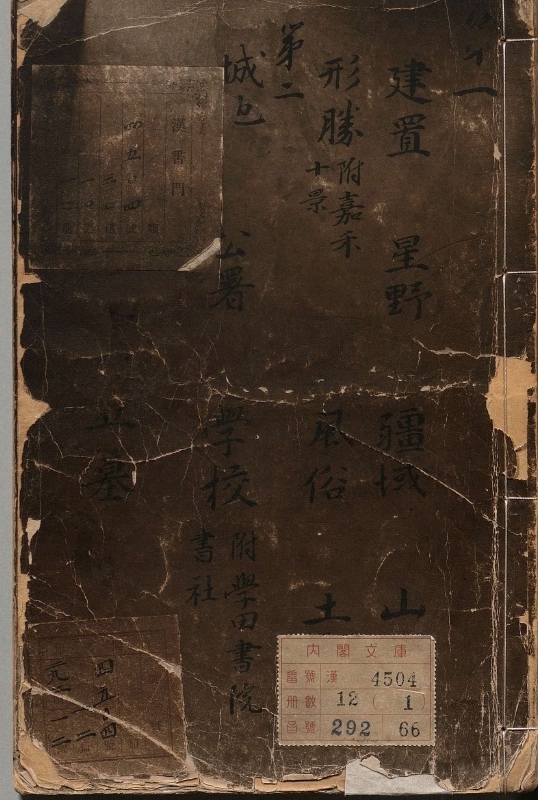 一
建置 星野 疆域 山
形勝 附嘉禾十景 風俗 土
第二
城邑 公署 學校 附學田書院書社
墓
漢書門
四五〇四
内閣文庫
番號 漢 4504
册數 12 (1)
函號 292 66
四五〇四